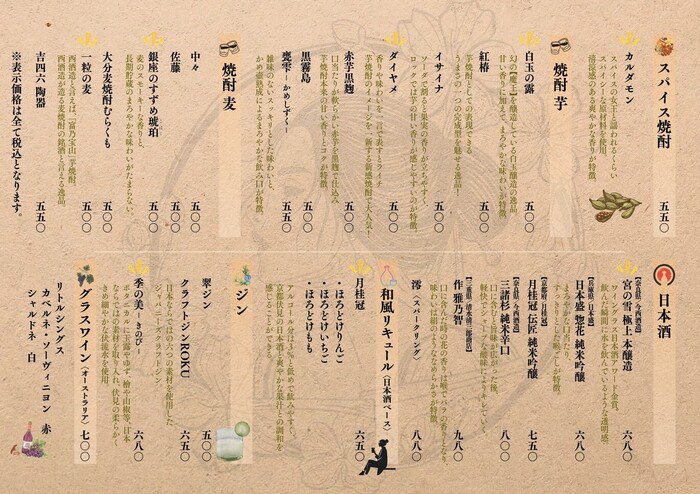 スパイス焼酎
カルダモン
スパイスの女王と謳われるくらい
スパイスな原材料を使用。
清涼感のある爽やかな香りが特徴。
五五〇
焼酎 芋
白玉の露
幻の【魔王】を醸造している白玉醸造の逸品。
甘い香りに加えて、まろやかな味わいが特徴。
五〇〇
紅椿
芋焼酎としての表現できる
うまさの一つの完成型を魅せる逸品！
五〇〇
イサイナ
ソーダで割ると果実の香りが立ちやすく、
ロックでは芋の甘い香りが感じやすいのが特徴。
五〇〇
ダイヤメ
香りや味わいを一言で表すとライチ
芋焼酎のイメージを一新する新感焼酎で大人気！
五〇〇
赤芋黒麹
口当たりが軟らかい赤芋を黒麹で仕込み、
芋焼酎本来の甘い香りとコクが特徴。
五〇〇
黒霧島
五〇〇
甕雫 -かめしずく-
雑味のないスッキリとした味わいと、
かめ壺熟成によるまろやかな飲み口が特徴。
五五〇
焼酎 麦
中々
五〇〇
佐藤
五〇〇
銀座のすずめ琥珀
麦のスモーキーな香りと、
長期貯蔵のまろやかな味わいがたまらない。
五〇〇
大分麦焼酎むらくも
五〇〇
一粒の麦
西酒造と言えば、「富乃宝山」芋焼酎。
西酒造が造る麦焼酎の銘酒と言える逸品。
五〇〇
吉四六 陶器
五五〇
※表示価格は全て税込となります。
日本酒
【奈良県/今西酒造】
宮の雪 極上 本醸造
ワイングラス日本酒アワード金賞。
飲んだ瞬間雨水を飲んでいるような透明感。
六八〇
【兵庫県/日本盛】
日本盛 惣花 純米吟醸
まろやかな口当たり、
すっきりとした喉ごしが特徴。
六八〇
【京都府/月桂冠】
月桂冠 伝匠 純米吟醸
七五〇
【奈良県/今西酒造】
三諸杉 純米辛口
口に含むと旨味が広がった後、
軽快でシャープな酸味によりキレていく。
八〇〇
【三重県/清水清三郎商店】
作 雅乃智
口に含んだ時の花の香りは喉でバラの香りとなり、
味わいは絹のようななめらかさが特徴。
九八〇
澪〈スパークリング〉
八八〇
和風リキュール〈日本酒ベース〉
・ほろどけりんご
・ほろどけいちご
・ほろどけもも
月桂冠
アルコール分は3%と低めで飲みやすく、
京都伏見の日本酒と爽やかな果汁との調和を
感じることができる。
六五〇
ジン
翠ジン
五〇〇
クラフトジンROKU
日本ならではの六つの素材を使用した
ジャパニーズクラフトジン。
六五〇
季の美 -きのび-
ボタニカルに玉露や柚子、檜や山椒等、日本
ならではの素材を取り入れ、伏見の柔らかく
きめ細やかな伏流水を使用。
六八〇
グラスワイン〈オーストラリア〉 七〇〇
リトルシングス
カベルネ・ソーヴィニヨン 赤
シャルドネ 白